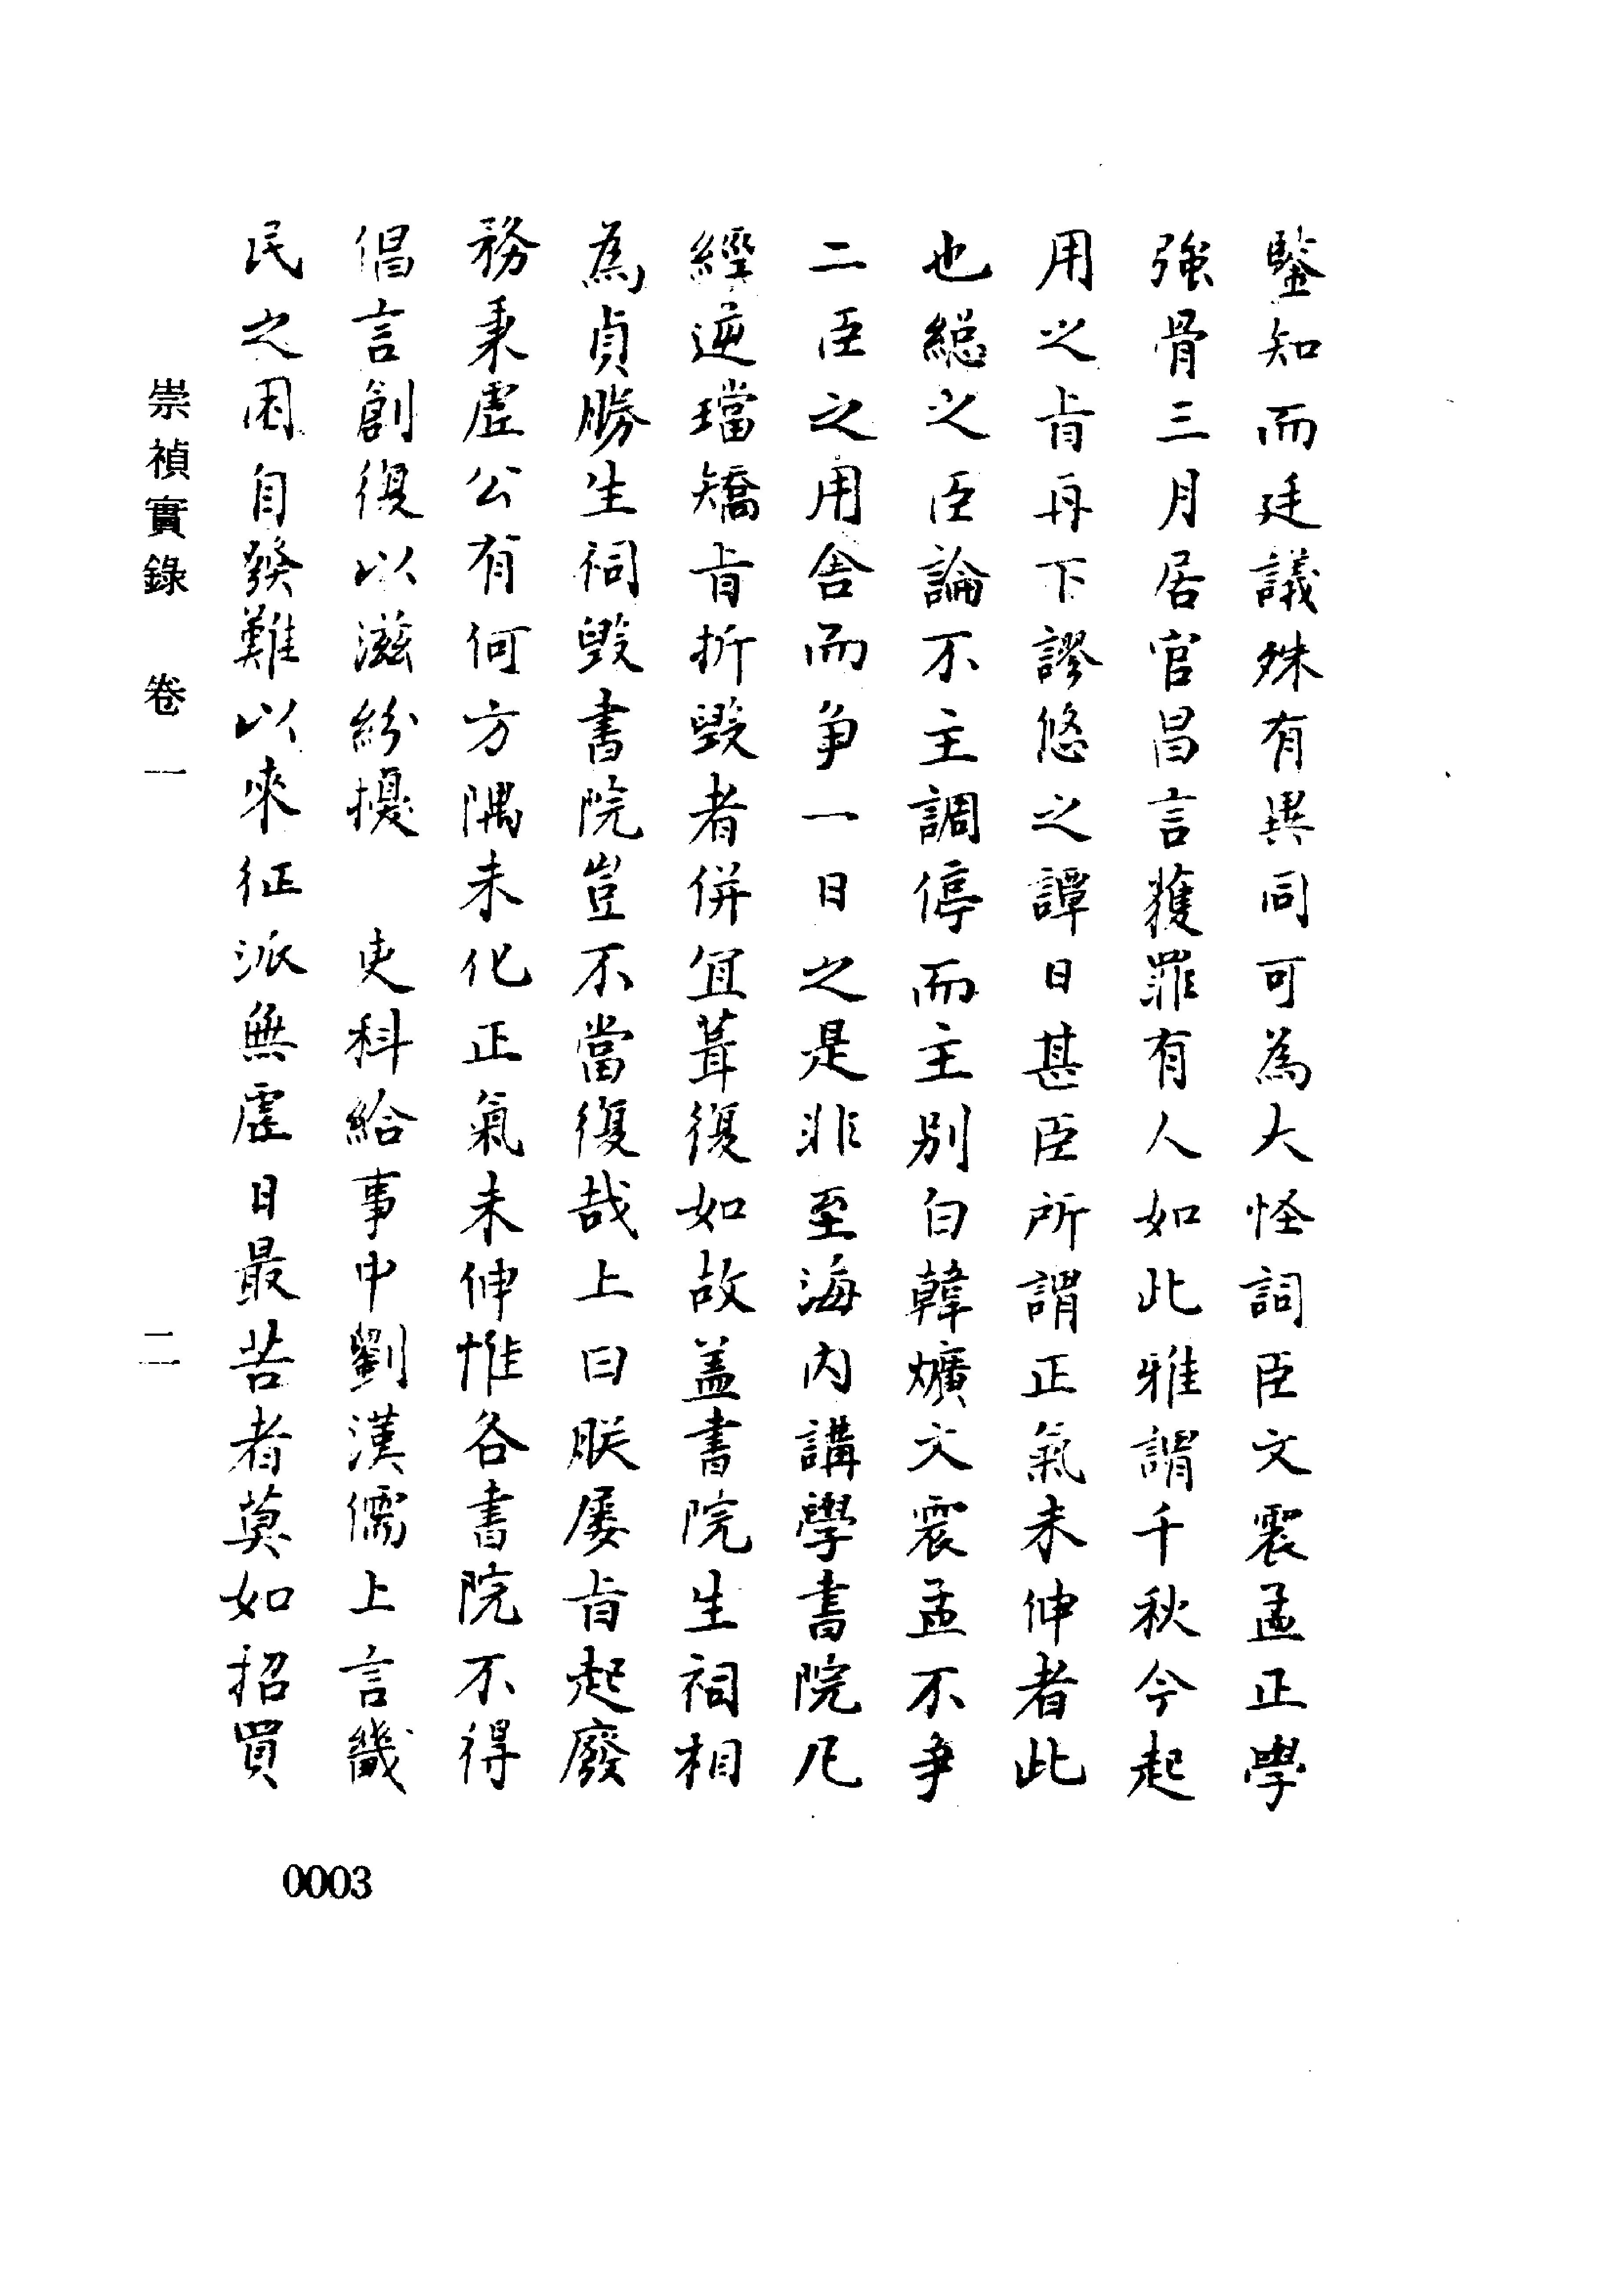 鑒知而廷議殊有異同可為大怪詞臣文震孟正學
強骨三月居官昌言獲罪有人如此雅謂千秋今起
用之旨再下謬悠之譚日甚臣所謂正氣未伸者此
也總之臣論不主調停而主別白韓爌文震孟不爭
二臣之用舍而爭一日之是非至海内講學書院凡
經逆璫矯旨折毀者併宜葺復如故盖書院生祠相
為貞勝生祠毀書院豈不當復哉上曰朕屡旨起廢
務秉虛公有何方隅未化正氣未伸惟各書院不得
倡言創復以滋紛擾　吏科給事中劉漢儒上言畿
民之困自發難以來征派無虛日最苦者莫如招買
崇禎實錄　卷一　二
0003